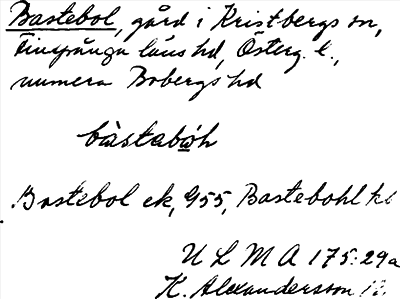 Bastebol, gård i Kristbergs sn,
Finspånga läns hd, Österg. l.,
numera Bobergs hd
bàstabωh
Bastebol ek, 955, Bastebohl kb
U L M A 175:29a
K. Alexandersson